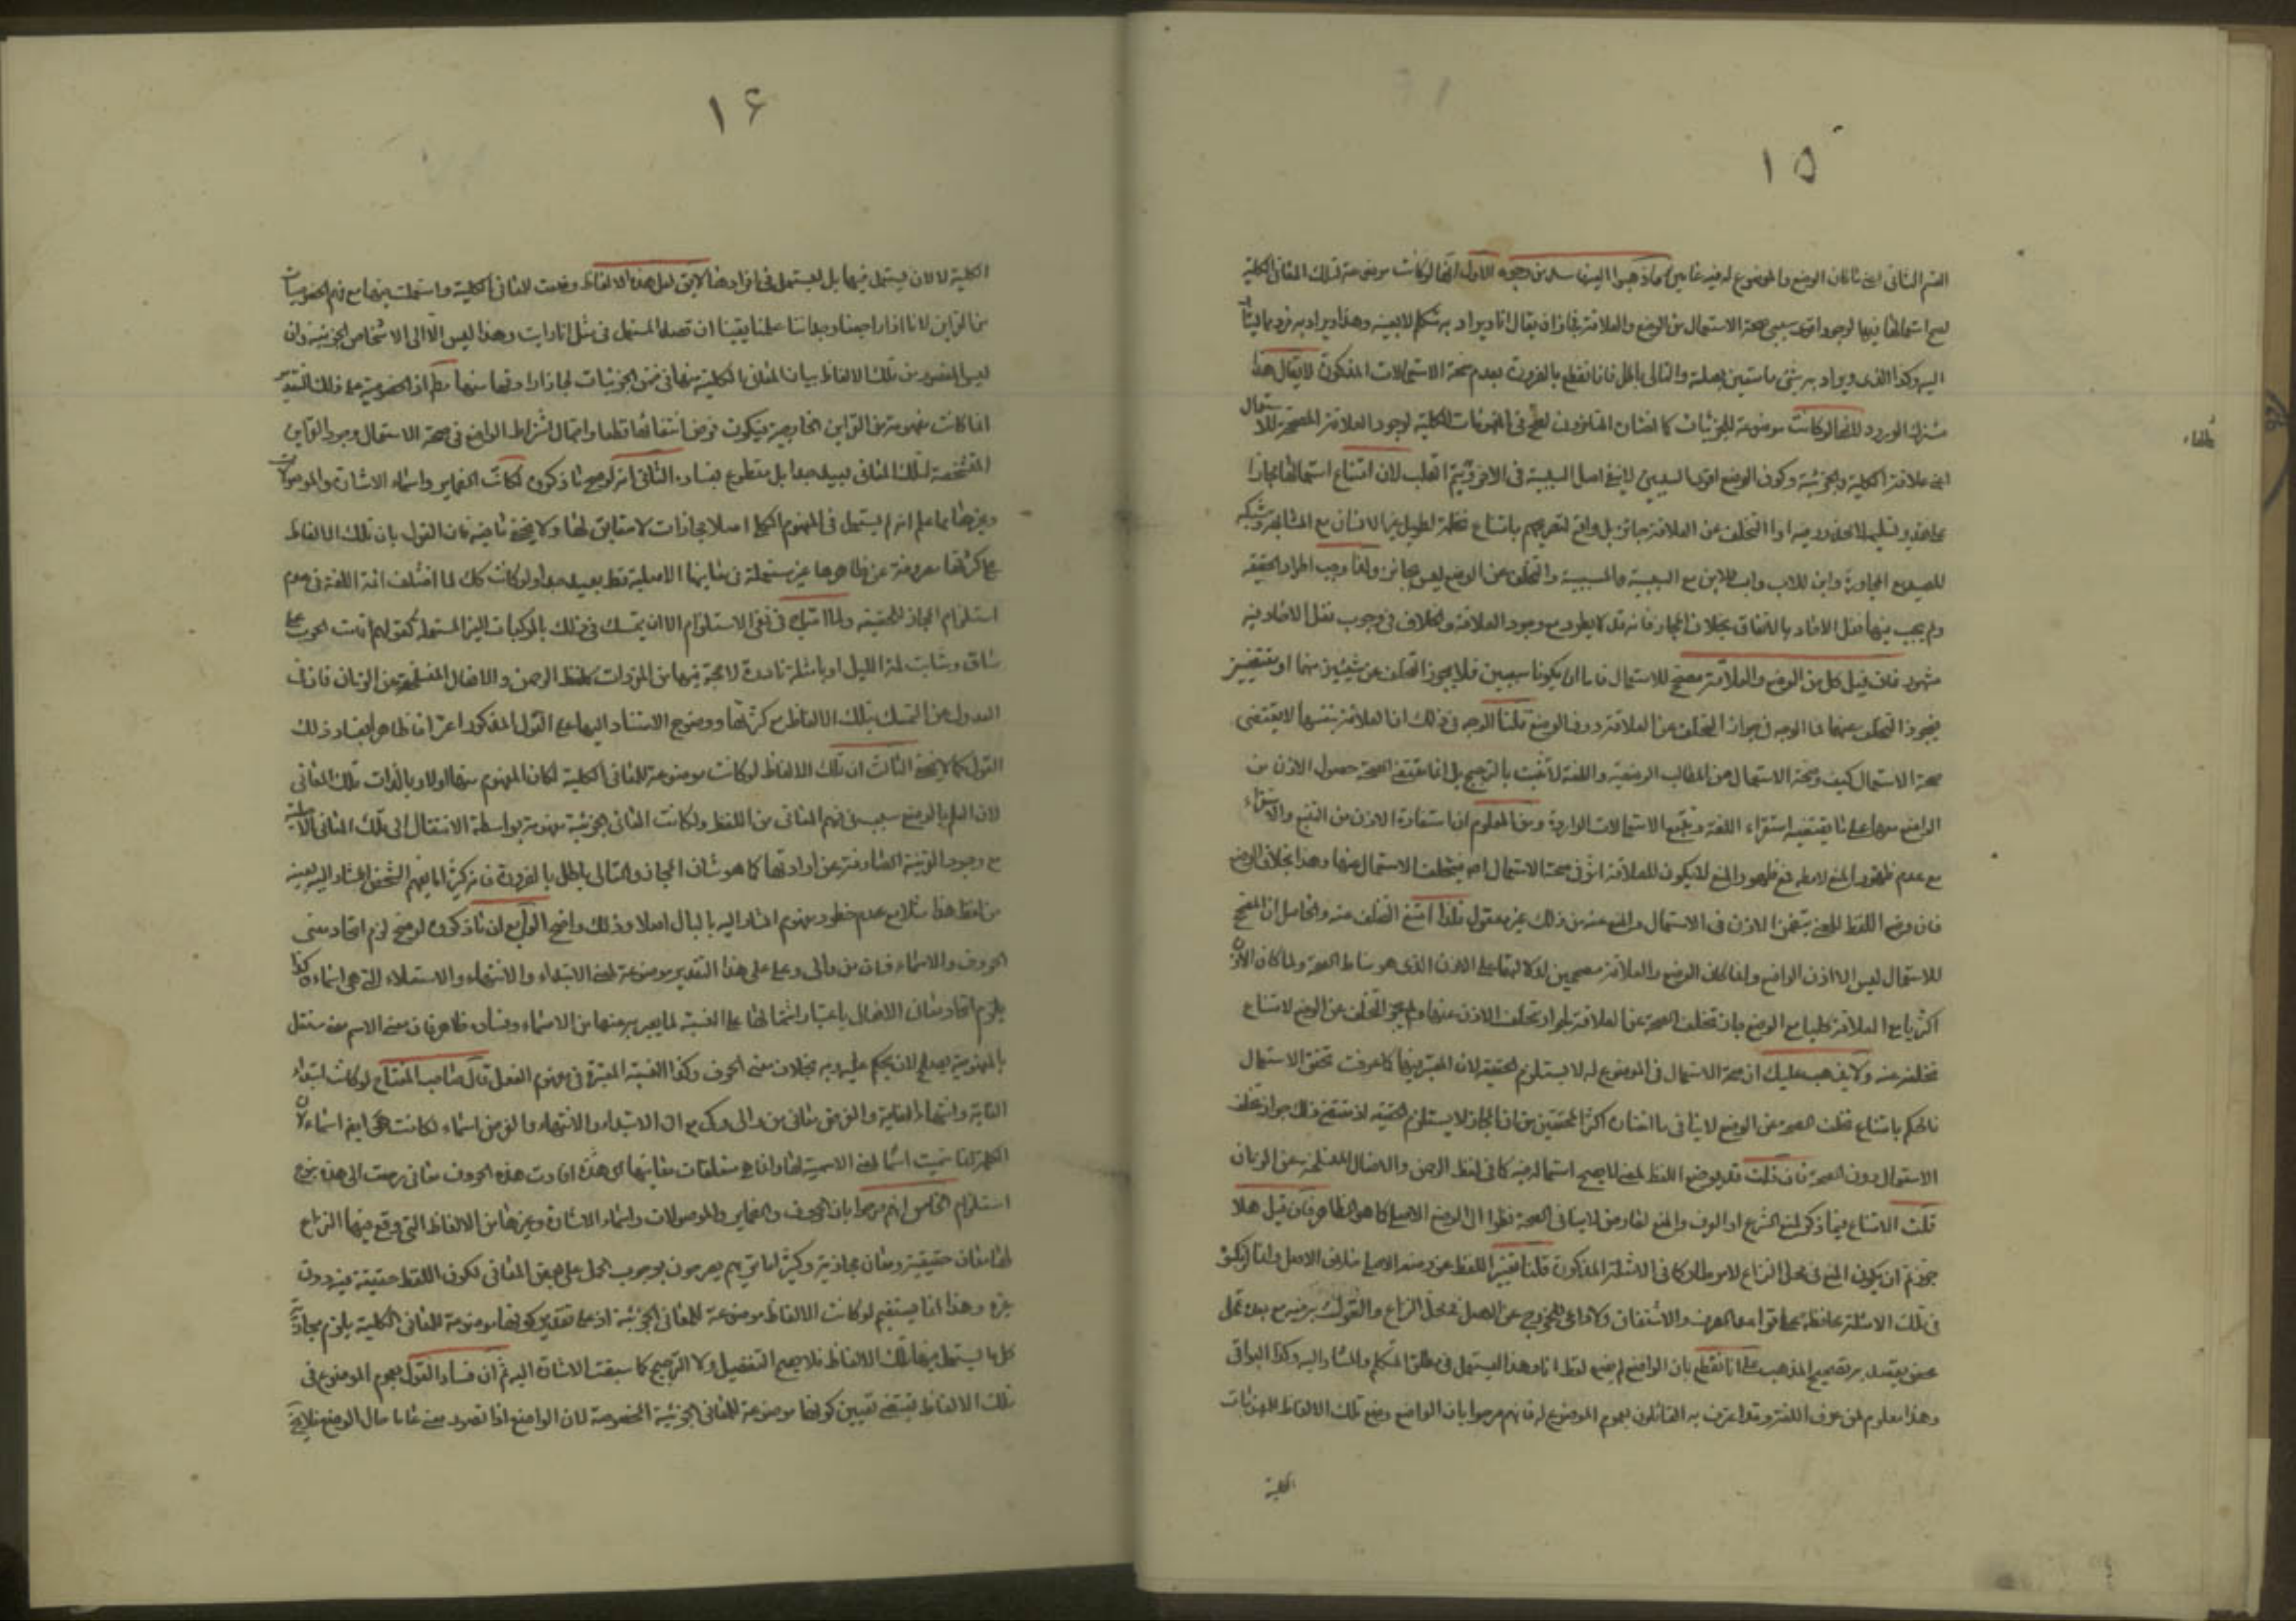 ١٥
القسم الثانى اعنى ما كان الوضع والموضوع له فيه عامين كما ذهبوا اليه فاسد من وجوه الاول انها لو كانت موضوعة لتلك المعانى الكلية
لصح استعمالها فيها لوجود اقوى سببى صحة الاستعمال من الوضع والعلاقة فجاز ان يقال انا ويراد به متكلم لا بعينه وهذا ويراد به فرد مما يشار
اليه وكذا الذى ويراد به شئ ما متعين بصلة والتالى باطل فانا نقطع بالضرورة بعدم صحة الاستعمالات المذكورة لا يقال هذا
مشترك الورود لانها لو كانت موضوعة للجزئيات كما اختاره المتاخرون لصح فى المفهومات الكلية لوجود العلاقة المصححة للاستعمال
اعنى علاقة الكلية والجزئية وكون الوضع اقوى السببين لا ينفى اصل السببية فى الاخر فيتم القلب لان امتناع استعمالها مجازا
بعد تسليمه لا محذور فيه اذ التخلف عن العلاقة جائز بل واقع لتصريحهم بامتناع نخلة لطويل غير الانسان مع المشابهة وشبكة
للصيد مع المجاورة وابن للاب واب للابن مع السببية والمسببية والتخلف عن الوضع ليس بجائز ولذا وجب اطراد الحقيقة
ولم يجب فيها نقل الاحاد بالاتفاق بخلاف المجاز فانه قد لا يطرد مع وجود العلاقة والخلاف فى وجوب نقل الاحاد فيه
مشهور فان قيل كل من الوضع والعلاقة مصحح للاستعمال فاما ان يكونا سببين فلا يجوز التخلف عن شيئين منهما او مقتضيين
فيجوز التخلف عنهما فما الوجه فى جواز التخلف عن العلاقة دون الوضع قلنا الوجه فى ذلك ان العلاقة بنفسها لا يقتضى
صحة الاستعمال كيف وصحة الاستعمال من المطالب الوضعية واللغة لا تثبت بالترجيح بل انما يقتضى الصحة حصول الاذن من
الواضع معها على ما يقتضيه استقراء اللغة وتتبع الاستعمالات الواردة ومن المعلوم ان استفادة الاذن من التتبع والاستقراء
مع عدم ظهور المنع لا مطلقا فمع ظهور المنع لا يكون للعلاقة اثر فى صحة الاستعمال اصلا فيتخلف الاستعمال عنها وهذا بخلاف الوضع
فان وضع اللفظ للمعنى يتضمن الاذن فى الاستعمال والمنع عنه مع ذلك غير معقول فلذا امتنع التخلف عنه والحاصل ان المصحح
للاستعمال ليس الا اذن الواضع وانما كان الوضع والعلاقة مصححين لدلالتهما على الاذن الذى هو مناط الصحة ولما كان الاذن
اكثريا مع العلاقة كليا مع الوضع جاز تخلف الصحة عن العلاقة لجواز تخلف الاذن عنها ولم يجز التخلف عن الوضع لامتناع
تخلفه عنه ولا يذهب عليك ان صحة الاستعمال فى الموضوع له لا يستلزم الحقيقة لان المعتبر فيها كما عرفت تحقق الاستعمال
فالحكم بامتناع تخلف الصحة عن الوضع لا ينافى ما اختاره اكثر المحققين من ان المجاز لا يستلزم الحقيقة اذ مقتضى ذلك جواز تخلف
الاستعمال دون الصحة فان قلت قد يوضع اللفظ لمعنى لا يصح استعماله فيه كما فى لفظ الرحمن والافعال المنسلخة عن الزمان
قلت الامتناع فيما ذكر لمنع الشرع او العرف والمنع لعارض لا ينافى الصحة نظرا الى الوضع الاصلى كما هو الظاهر فان قيل هلا
جوزتم ان يكون المنع فى محل النزاع لامر طار كما فى الامثلة المذكورة قلنا تغيير اللفظ عن وضعه الاصلى خلاف الاصل وانما ارتكب
فى تلك الامثلة محافظة على قواعد العرف والاشتقاق ولا داعى للخروج عن الاصل فى محل النزاع والقول به فيه مع بعده تمحل
محض يقصد به تصحيح المذهب على انا نقطع بان الواضع لم يضع لفظ انا وهذا ليستعمل فى مطلق المتكلم والمشار اليه وكذا البواقى
وهذا معلوم لمن عرف اللغة وقد اعترف به القائلون بعموم الموضوع له فانهم صرحوا بان الواضع وضع تلك الالفاظ للمفهومات
الكلية
١٤
الكلية لا لان يستعمل فيها بل ليستعمل فى افرادها لا يقال لعل هذه الالفاظ وضعت للمعانى الكلية واستعملت فيها مع فهم الخصوصيات
من القراين لانا اذا راجعنا وجداننا علمنا يقينا ان قصد المستعمل فى مثل انا وانت وهذا ليس الا الى الاشخاص الجزئية وان
ليس المقصود من تلك الالفاظ بيان المعانى الكلية منها فى ضمن الجزئيات
اذا كانت مفهومة من القراين الخارجية فيكون فرض انتفائها قطعا واحتمال اشتراط الواضع فى صحة الاستعمال وجود القراين
المشخصة لتلك المعانى بعيد جدا بل مقطوع بفساده الثانى انه لو صح ما ذكروه لكانت الضماير واسماء الاشارة والموصولات
وغيرها مما علم انه لم يستعمل فى المفهوم الكلى اصلا مجازات لا حقايق لها ولا يخفى ما فيه فان القول بان تلك الالفاظ
على كثرتها مصروفة عن ظاهرها غير مستعملة فى معانيها الاصلية قط بعيد جدا ولو كانت كك لما اختلف ائمة اللغة فى عدم
استلزام المجاز للحقيقة ولما احتيج فى نفى الاستلزام الا ان يتمسك فى ذلك بالمركبات الغير المستعملة كقولهم قامت الحرب على
ساق وشابت لمة الليل او بامثلة نادرة لا حجة فيها من المفردات كلفظ الرحمن والافعال المنسلخة عن الزمان فاذن
العدول عن التمسك بتلك الالفاظ مع كثرتها ووضوح الاستناد اليها على القول المذكور اعتراف ظاهر بفساد ذلك
القول كما لا يخفى الثالث ان تلك الالفاظ لو كانت موضوعة للمعانى الكلية لكان المفهوم منها اولا وبالذات تلك المعانى
لان العلم بالوضع سبب فى فهم المعانى من اللفظ ولكانت المعانى الجزئية مفهومة بواسطة الانتقال الى تلك المعانى الاصلية
مع وجود القرينة الصارفة عن ارادتها كما هو شان المجاز والتالى باطل بالضرورة فانه كثيرا ما يفهم الشخص المشار اليه بعينه
من لفظ هذا مثلا مع عدم خطور مفهوم المشار اليه بالبال اصلا وذلك واضح الرابع ان ما ذكروه لو صح لزم اتحاد معنى
الحروف والاسماء فان من والى وعلى على هذا التقدير موضوعة لمعنى الابتداء والانتهاء والاستعلاء التى هى اسماء وكذا
يلزم اتحاد معانى الافعال باعتبار اشتمالها على النسبة لما يعبر به عنها من الاسماء وفساده ظاهر فان معنى الاسم معنى مستقل
بالمفهومية يصلح لان يحكم عليه وبه بخلاف معنى الحرف وكذا النسبة المعتبرة فى مفهوم الفعل قال صاحب المفتاح لو كانت ابتداء
الغاية وانتهاء الغاية والغرض معانى من والى وكى مع ان الابتداء والانتهاء والغرض اسماء لكانت هى ايضا اسماء لان
الكلمة انما سميت اسما لمعنى الاسمية لها وانما هى متعلقات معانيها اى هذه افادت هذه الحروف معانى رجعت الى هذه بنوع
استلزام الخامس انهم صرحوا بان الحروف والضماير والموصولات واسماء الاشارة وغيرها من الالفاظ التى وقع فيها النزاع
لها معان حقيقية ومعان مجازية وكثيرا ما تريهم يصرحون بوجوب الحمل على بعض المعانى لكون اللفظ حقيقة فيه دون
غيره وهذا انما يستقيم لو كانت الالفاظ موضوعة للمعانى الجزئية اذ على تقدير كونها موضوعة للمعانى الكلية يلزم مجازية
كل ما يستعمل فيه تلك الالفاظ فلا يصح التفصيل ولا الترجيح كما سبقت الاشارة اليه ثم ان فساد القول بعموم الموضوع فى
تلك الالفاظ يقتضى تعيين كونها موضوعة للمعانى الجزئية المخصوصة لان الواضع اذا تصور معنى عاما حال الوضع فلا يخ